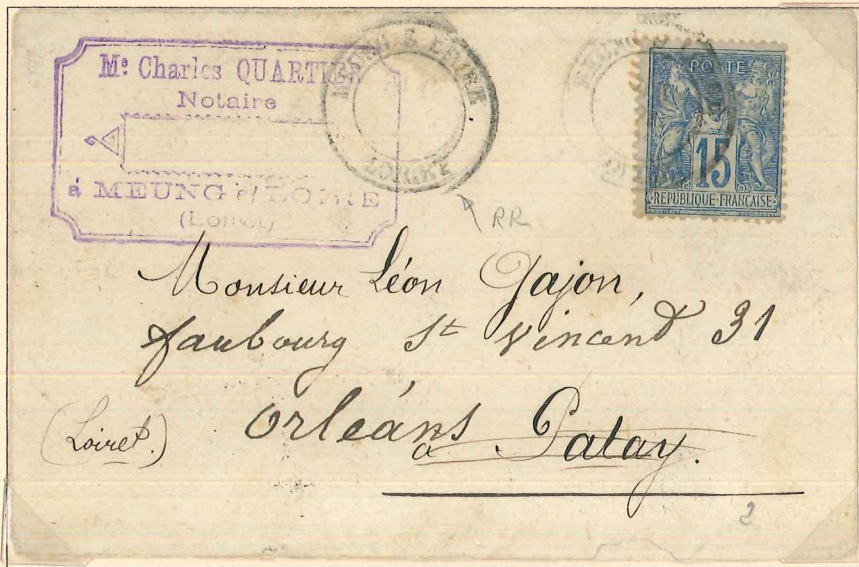 Me Charles QUARTIER
Notaire
à MEUNG s/ LOIRE
(Loiret)
MEUNG S LOIRE
LOIRET
MEUNG
POSTE
15
REPUBLIQUE FRANÇAISE
RR
Monsieur Léon Gajon,
faubourg St Vincent 31
(Loiret.)
Orléans
à Patay.
2